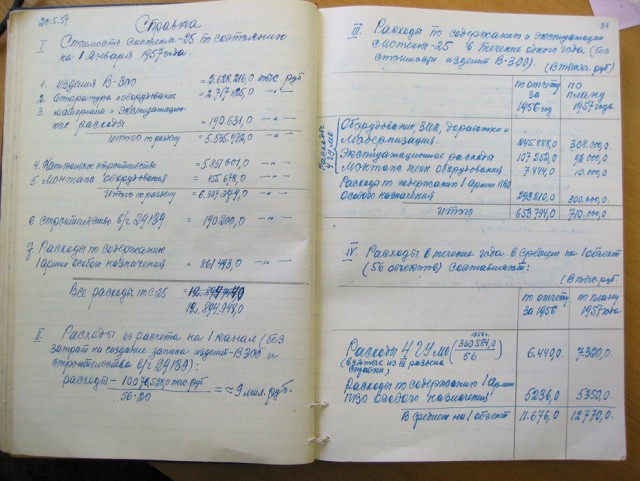 20.5.57
Справка
I. Стоимость системы-25 по состоянию
на 1 января 1957 года.
1. изделия В-300 = 2.628.216,0 тыс. руб
2. аппаратура и оборудование = 2.717.125,0 —"—
3. материалы и эксплуатацион-
ные расходы = 190.631,0 —"—
Итого по разделу = 5.535.972,0 —"—
4. Капитальное строительство = 5.851.601,0 —"—
5. Монтаж оборудования = 455.678,0 —"—
Итого по разделу = 6.307.279,0 —"—
6 строительство в/ч 29139 = 190.200,0 —"—
7. Расходы по содержанию
1 армии особого назначения = 861.493,0 —"—
Все расходы по С-25 =
12.894.948,0
II Расходы из расчета на 1 канал (без
затрат на создание запаса изделий-В300 и
строительства в/ч 29139):
расходы - тыс руб = ≈ 9 мил. руб.
56·20
38
III. Расходы по содержанию и эксплуатации
системы-25 в течение одного года (без
стоимости изделий В-300). (В тысяч. руб)
по отчету за 1956 год
по плану 1957 года
Расходы 4 ГУМО
Оборудование, ЗИП, доработки и
модернизация. 245.888,0 308.000,0
Эксплуатационные расходы 107.252,0 92.000,0
Монтаж техн. оборудования 7.444,0 10.000,0
Расходы по содержанию 1 армии ПВО
Особого назначения 293.210,0 300.000,0
Итого 653.794,0 710.000,0
IV. Расходы в течение года в среднем на 1 объект
(56 объектов) составляют:
(В тыс. руб.
по отчету за 1956
по плану 1957 года
Расходы 4 ГУ МО (1956г. 360584,0 / 56) 6.440,0 7320,0
(взятые из III раздела
справки)
Расходы по содержанию 1 армии
ПВО особого назначения 5236,0 5350,0
В среднем на 1 объект 11.676,0 12.770,0